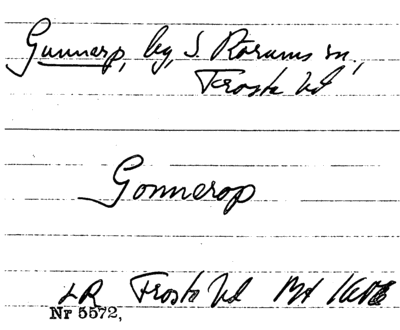 Gunnarp, by, S. Rörums sn,
Frosta hd
Gonnerop
LR Frosta hd
Nr 5572,